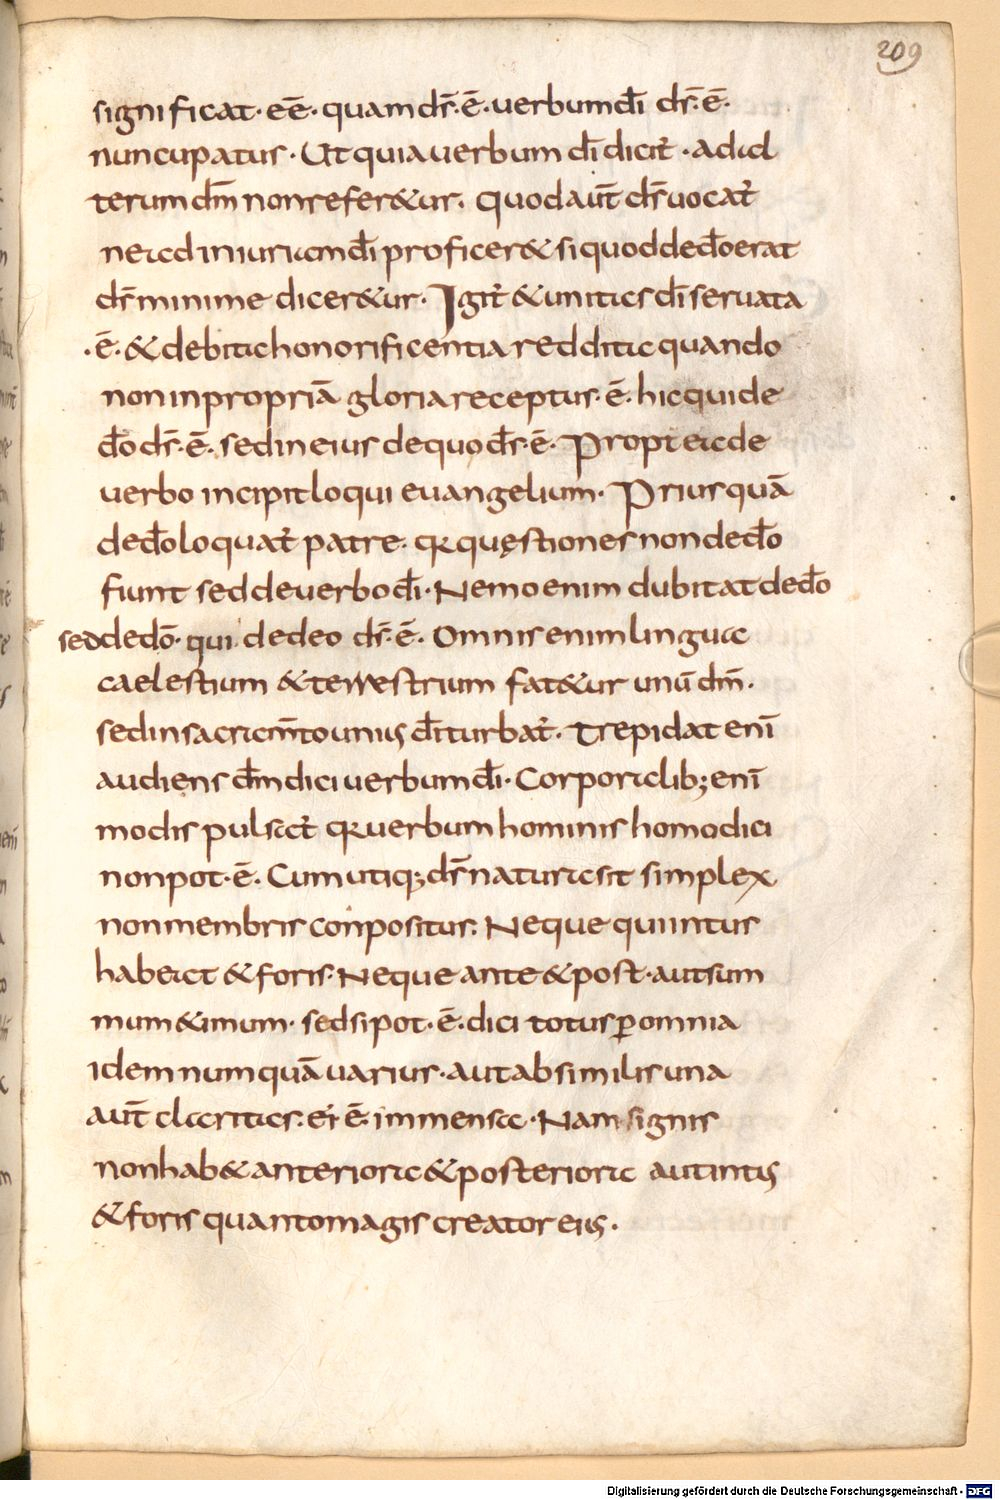 209
significat· eē· quam dr̄·ē· uerbum dī dr̄·ē·
nuncupatus· Ut quia uerbum dī dicit̄· ad al
terum dm̄ non refer&ur· quod aut̄ dr̄ uocat̄
ne ad iniuriam dī proficer& si quod de do erat
dr̄ minime dicer&ur· Igit̄ & unitas dī seruata
·ē· & debita honorificentia reddita quando
non in propriā gloria receptus·ē· hic qui de
do dr̄·ē· sed in eius de quo dr̄·ē· Propterea de
uerbo incipit loqui euangelium· Prius quā
de do loquat̄ patre· qr quęstiones non de do
fiunt sed de uerbo dī· Nemo enim dubitat de do
sed de dō· qui de deo dr̄·ē· Omnis enim lingua
caelestium & terrestrium fat&ur unū dm̄·
sed in sacram̄to unius dī turbat̄· Trepidat enī
audiens dm̄ dici uerbum dī· Corporalib; enī
modis pulsat̄ qr uerbum hominis homo dici
non pot·ē· Cum utiq; dr̄ natura sit simplex
non membris conpositus· Neque qui intus
habeat & foris· Neque ante & post· aut sum
mum & imum· sed si pot·ē· dici totus ꝑ omnia
idem numquā uarius· aut absimilis una
aut̄ claritas· ei ē· immensa· Nam signis
non hab& anteriora & posteriora aut intus
& foris quanto magis creator eius·
Digitalisierung gefördert durch die Deutsche Forschungsgemeinschaft · DFG